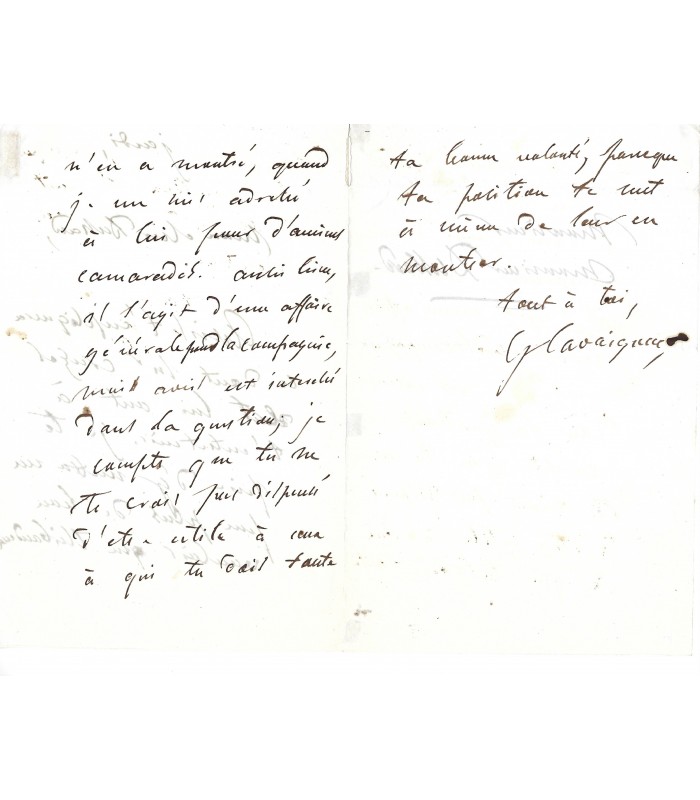 n'en a montré, quand
je me suis adressé
à lui pour d'anciens
camarades. aussi bien,
s'il s'agit d'une affaire
générale pour la compagnie,
mais avoil est intéressé
dans la question; je
compte que tu ne
te crois pas dispensé
d'être utile à ceux
à qui tu dois toute
ta bonne volonté, parceque
ta position te met
à même de leur en
montrer.
tout à toi,
G Cavaignac